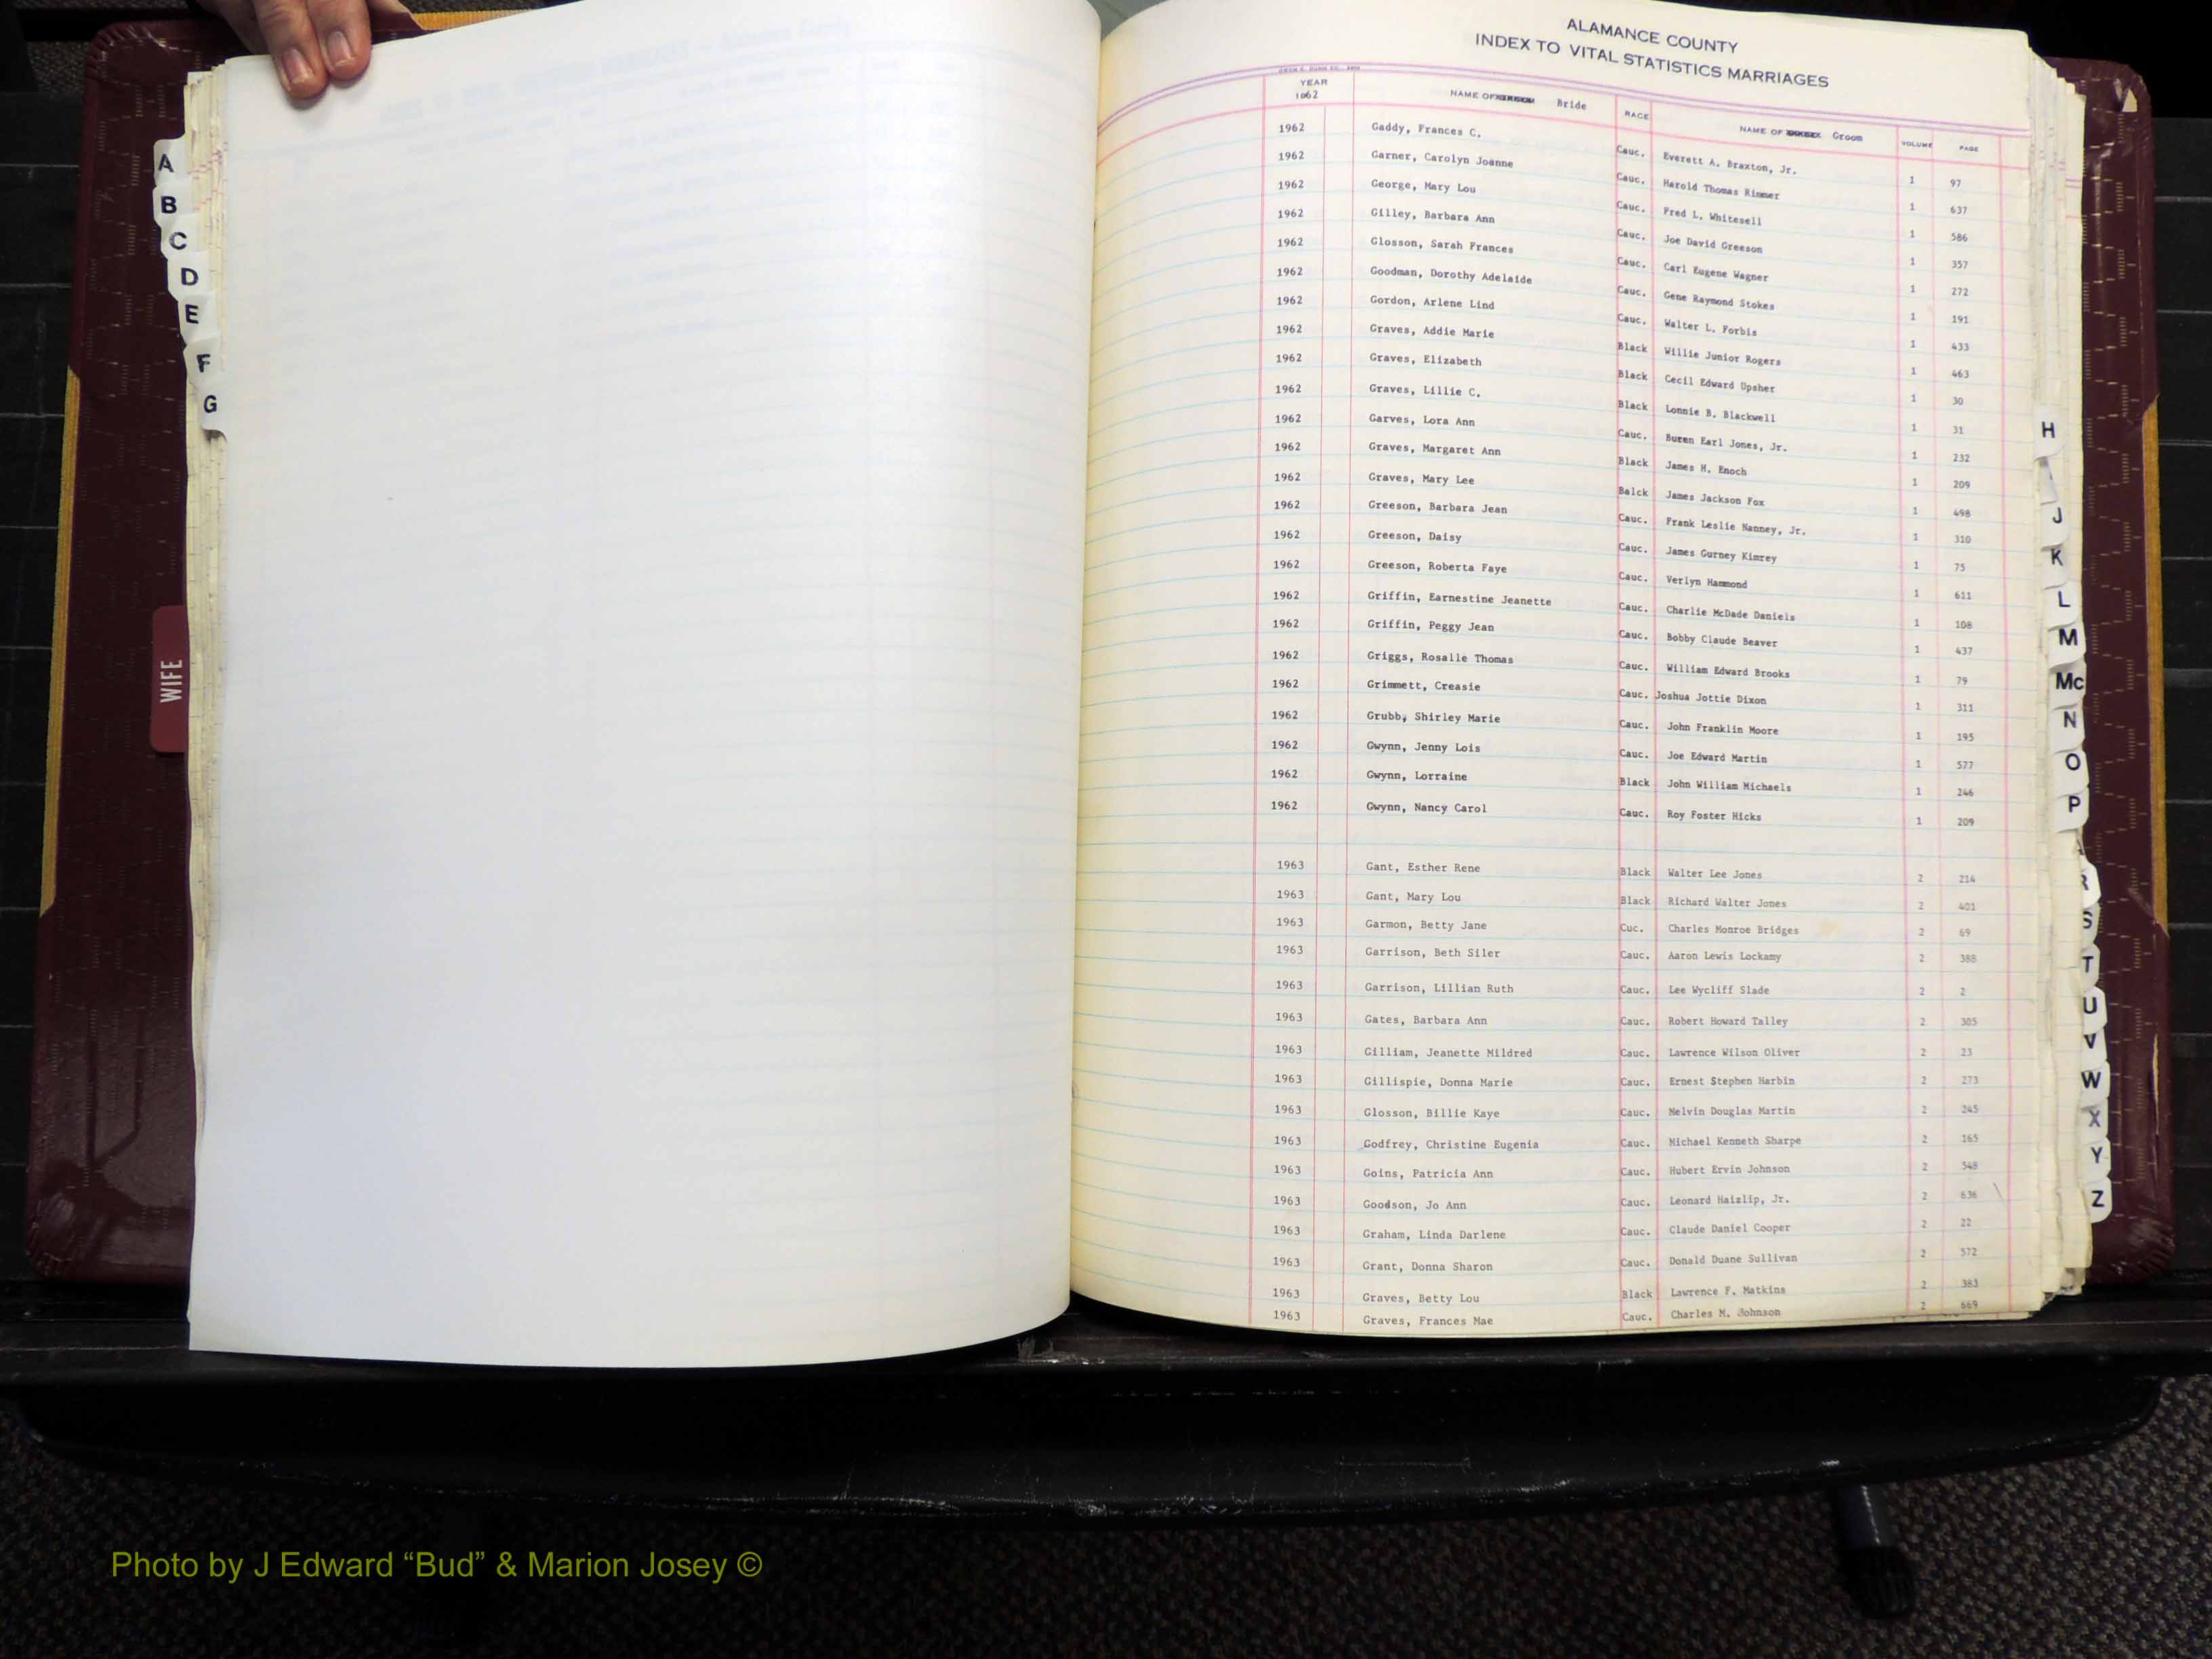 ALAMANCE COUNTY
INDEX TO VITAL STATISTICS MARRIAGES
YEAR 1962 NAME OF Bride RACE NAME OF Groom VOLUME PAGE
1962 Gaddy, Frances C. Cauc. Everett A. Braxton, Jr. 1 97
1962 Garner, Carolyn Joanne Cauc. Harold Thomas Rimmer 1 637
1962 George, Mary Lou Cauc. Fred L. Whitesell 1 586
1962 Gilley, Barbara Ann Cauc. Joe David Greeson 1 357
1962 Glosson, Sarah Frances Cauc. Carl Eugene Wagner 1 272
1962 Goodman, Dorothy Adelaide Cauc. Gene Raymond Stokes 1 191
1962 Gordon, Arlene Lind Cauc. Walter L. Forbis 1 433
1962 Graves, Addie Marie Black Willie Junior Rogers 1 463
1962 Graves, Elizabeth Black Cecil Edward Upsher 1 30
1962 Graves, Lillie C. Black Lonnie B. Blackwell 1 31
1962 Garves, Lora Ann Cauc. Buren Earl Jones, Jr. 1 232
1962 Graves, Margaret Ann Black James H. Enoch 1 209
1962 Graves, Mary Lee Balck James Jackson Fox 1 498
1962 Greeson, Barbara Jean Cauc. Frank Leslie Nanney, Jr. 1 310
1962 Greeson, Daisy Cauc. James Gurney Kimrey 1 75
1962 Greeson, Roberta Faye Cauc. Verlyn Hammond 1 611
1962 Griffin, Earnestine Jeanette Cauc. Charlie McDade Daniels 1 108
1962 Griffin, Peggy Jean Cauc. Bobby Claude Beaver 1 437
1962 Griggs, Rosalle Thomas Cauc. William Edward Brooks 1 79
1962 Grimmett, Creasie Cauc. Joshua Jottie Dixon 1 311
1962 Grubb, Shirley Marie Cauc. John Franklin Moore 1 195
1962 Gwynn, Jenny Lois Cauc. Joe Edward Martin 1 577
1962 Gwynn, Lorraine Black John William Michaels 1 246
1962 Gwynn, Nancy Carol Cauc. Roy Foster Hicks 1 209
1963 Gant, Esther Rene Black Walter Lee Jones 2 214
1963 Gant, Mary Lou Black Richard Walter Jones 2 401
1963 Garmon, Betty Jane Cuc. Charles Monroe Bridges 2 69
1963 Garrison, Beth Siler Cauc. Aaron Lewis Lockamy 2 388
1963 Garrison, Lillian Ruth Cauc. Lee Wycliff Slade 2 2
1963 Gates, Barbara Ann Cauc. Robert Howard Talley 2 305
1963 Gilliam, Jeanette Mildred Cauc. Lawrence Wilson Oliver 2 23
1963 Gillispie, Donna Marie Cauc. Ernest Stephen Harbin 2 273
1963 Glosson, Billie Kaye Cauc. Melvin Douglas Martin 2 245
1963 Godfrey, Christine Eugenia Cauc. Michael Kenneth Sharpe 2 165
1963 Goins, Patricia Ann Cauc. Hubert Ervin Johnson 2 548
1963 Goodson, Jo Ann Cauc. Leonard Haizlip, Jr. 2 636
1963 Graham, Linda Darlene Cauc. Claude Daniel Cooper 2 22
1963 Grant, Donna Sharon Cauc. Donald Duane Sullivan 2 572
1963 Graves, Betty Lou Black Lawrence F. Matkins 2 383
1963 Graves, Frances Mae Cauc. Charles M. Johnson 2 669
A
B
C
D
E
F
G
WIFE
H
I
J
K
L
M
Mc
N
O
P
R
S
T
U
V
W
X
Y
Z
Photo by J Edward “Bud” & Marion Josey ©